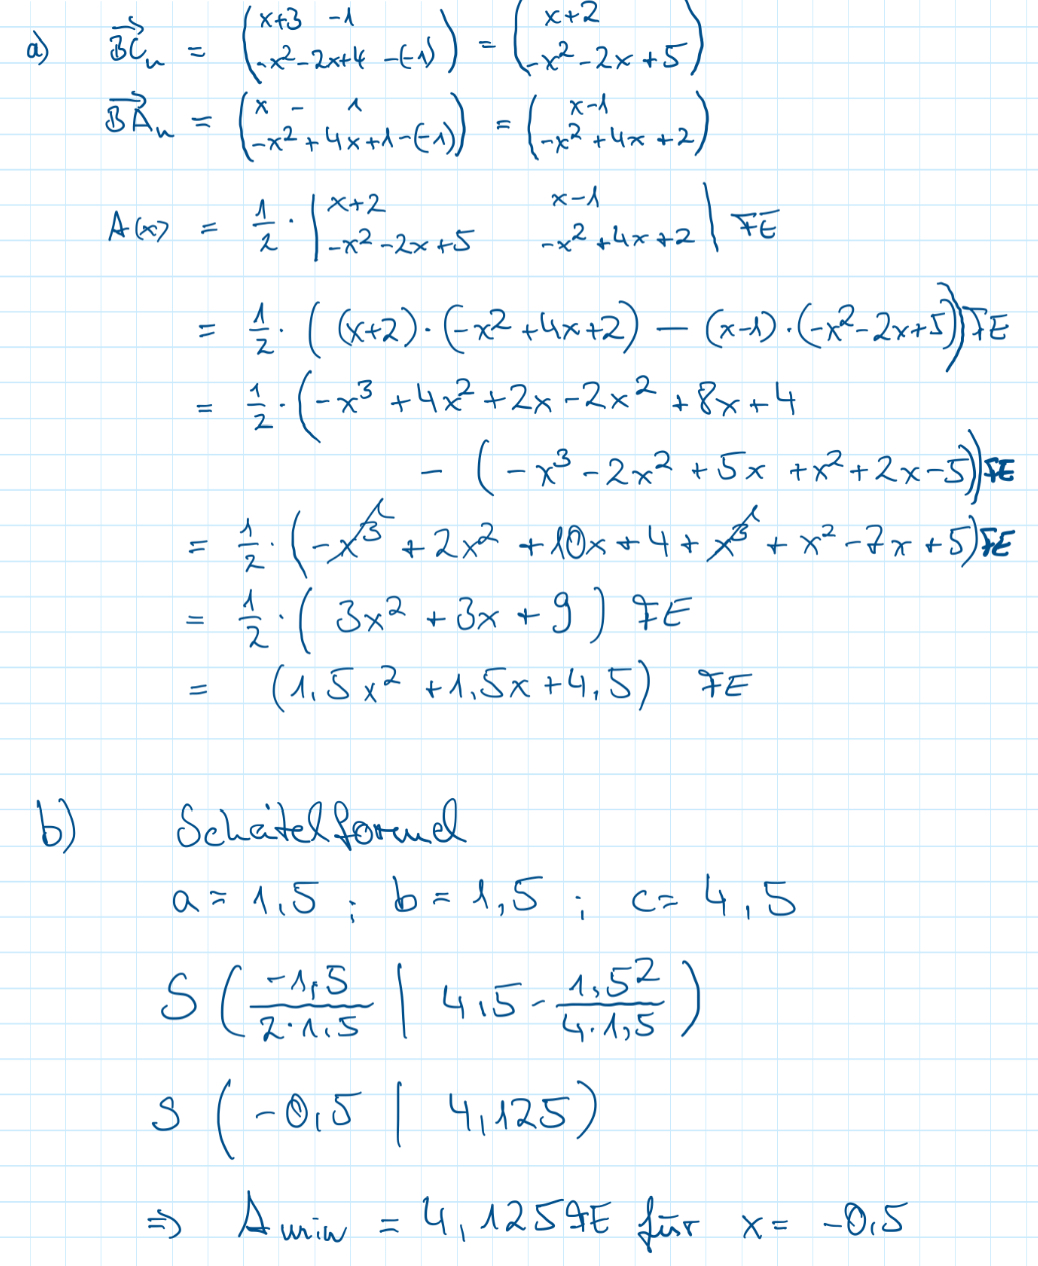 a) $\overrightarrow{BC_n} = \begin{pmatrix} x+3 \; -1 \\ -x^2-2x+4 \; -(-1) \end{pmatrix} = \begin{pmatrix} x+2 \\ -x^2-2x+5 \end{pmatrix}$
$\overrightarrow{BA_n} = \begin{pmatrix} x \; - \; 1 \\ -x^2+4x+1-(-1) \end{pmatrix} = \begin{pmatrix} x-1 \\ -x^2+4x+2 \end{pmatrix}$
$A(x) = \frac{1}{2} \cdot \begin{vmatrix} x+2 & x-1 \\ -x^2-2x+5 & -x^2+4x+2 \end{vmatrix}$ FE
$= \frac{1}{2} \cdot ( (x+2) \cdot (-x^2+4x+2) - (x-1) \cdot (-x^2-2x+5) )$ FE
$= \frac{1}{2} \cdot ( -x^3+4x^2+2x-2x^2+8x+4$
$- ( -x^3-2x^2+5x+x^2+2x-5 ) )$ FE
$= \frac{1}{2} \cdot ( -x^3+2x^2+10x+4+x^3+x^2-7x+5 )$ FE
$= \frac{1}{2} \cdot ( 3x^2+3x+9 )$ FE
$= (1,5x^2+1,5x+4,5)$ FE
b) Scheitelformel
a = 1,5 ; b = 1,5 ; c = 4,5
$S \left( \frac{-1,5}{2 \cdot 1,5} \middle| 4,5 - \frac{1,5^2}{4 \cdot 1,5} \right)$
S ( -0,5 | 4,125 )
$\Rightarrow A_{min} = 4,125$ FE für x = -0,5